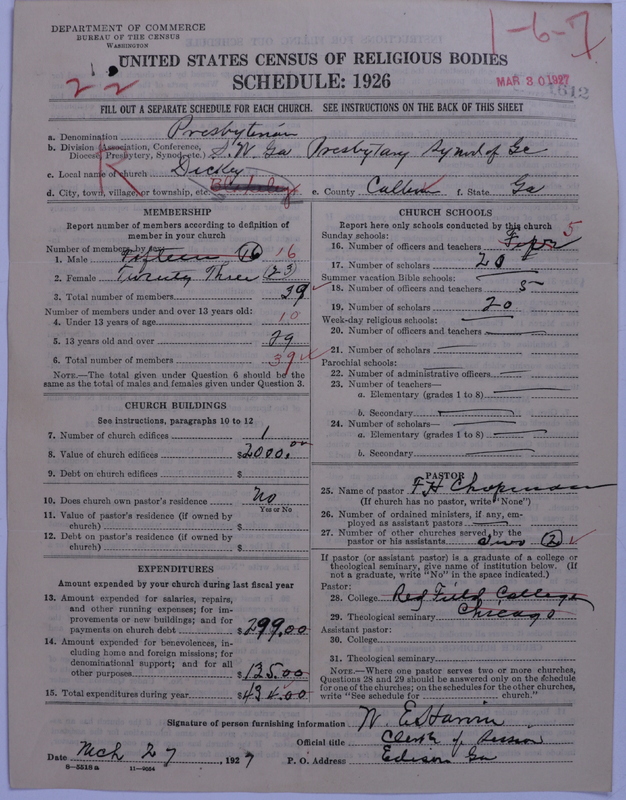 DEPARTMENT OF COMMERCE
BUREAU OF THE CENSUS
WASHINGTON
1-6-7
UNITED STATES CENSUS OF RELIGIOUS BODIES
SCHEDULE: 1926
MAR 30 1927
1612
22
FILL OUT A SEPARATE SCHEDULE FOR EACH CHURCH. SEE INSTRUCTIONS ON THE BACK OF THIS SHEET
a. Denomination Presbyterian
b. Division (Association, Conference, Diocese, Presbytery, Synod, etc.) S. W Ga Presbytary Synod of Ga
c. Local name of church Dickey
d. City, town, village, or township, etc. Blakeley e. County Calhoun f. State Ga
R
MEMBERSHIP
Report number of members according to definition of
member in your church
Number of members by
1. Male Fifteen 16 16
2. Female Twenty Three (23)
3. Total number of members 39
Number of members under and over 13 years old:
4. Under 13 years of age 10
5. 13 years old and over 29
6. Total number of members 39
NOTE.—The total given under Question 6 should be the
same as the total of males and females given under Question 3.
CHURCH BUILDINGS
See instructions, paragraphs 10 to 12
7. Number of church edifices 1
8. Value of church edifices $2000.00
9. Debt on church edifices $
10. Does church own pastor's residence No
Yes or No
11. Value of pastor's residence (if owned by
church) $
12. Debt on pastor's residence (if owned by
church) $
EXPENDITURES
Amount expended by your church during last fiscal year
13. Amount expended for salaries, repairs,
and other running expenses; for im-
provements or new buildings; and for
payments on church debt $299.00
14. Amount expended for benevolences, in-
cluding home and foreign missions; for
denominational support; and for all
other purposes $135.00
15. Total expenditures during year $434.00
CHURCH SCHOOLS
Report here only schools conducted by this church
Sunday schools:
16. Number of officers and teachers 5
17. Number of scholars 20
Summer vacation Bible schools:
18. Number of officers and teachers 5
19. Number of scholars 20
Week-day religious schools:
20. Number of officers and teachers
21. Number of scholars
Parochial schools:
22. Number of administrative officers
23. Number of teachers—
a. Elementary (grades 1 to 8)
b. Secondary
24. Number of scholars—
a. Elementary (grades 1 to 8)
b. Secondary
PASTOR
25. Name of pastor F H Chapman
(If church has no pastor, write "None")
26. Number of ordained ministers, if any, em-
ployed as assistant pastors
27. Number of other churches served by the
pastor or his assistants two (2)
If pastor (or assistant pastor) is a graduate of a college or
theological seminary, give name of institution below. (If
not a graduate, write "No" in the space indicated.)
Pastor:
28. College Red Field College
29. Theological seminary Chicago
Assistant pastor:
30. College
31. Theological seminary
NOTE.—Where one pastor serves two or more churches,
Questions 28 and 29 should be answered only on the schedule
for one of the churches; on the schedules for the other churches,
write "See schedule for church."
Signature of person furnishing information W. E.
Official title Clerk of Session
Date Mch 27, 1927 P. O. Address Edison Ga
8-5518a 11-9064